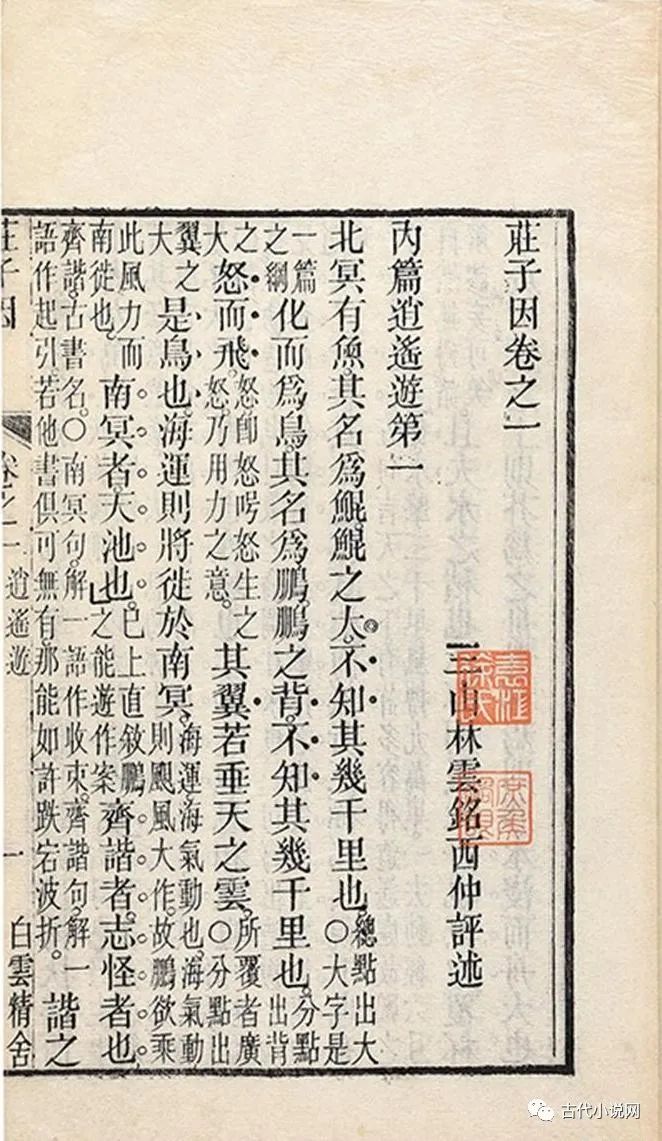 莊子因卷之一
三山林雲銘西仲評述
內篇逍遙遊第一
北冥有魚。其名爲鯤。鯤之大。不知其幾千里也。總點出大○大字是
一篇之綱化而爲鳥。其名爲鵬。鵬之背。不知其幾千里也。分點出背
之大怒而飛。怒卽怒呺怒生之怒。乃用力之意。其翼若垂天之雲。所覆者廣○分點出
翼之大是鳥也。海運則將徙於南冥。海運。海氣動也。海氣動則颶風大作。故鵬欲乘
此風力而南徙也。南冥者。天池也。已上直敘鵬之能遊作案齊諧者。志怪者也。
齊諧。古書名。○南冥句。解一語作收束。齊諧句。解一語作起引。若他書俱可無有。那能如許跌宕波折。諧之
莊子因 卷之一 逍遙遊 一 白雲精舍
古代小说网